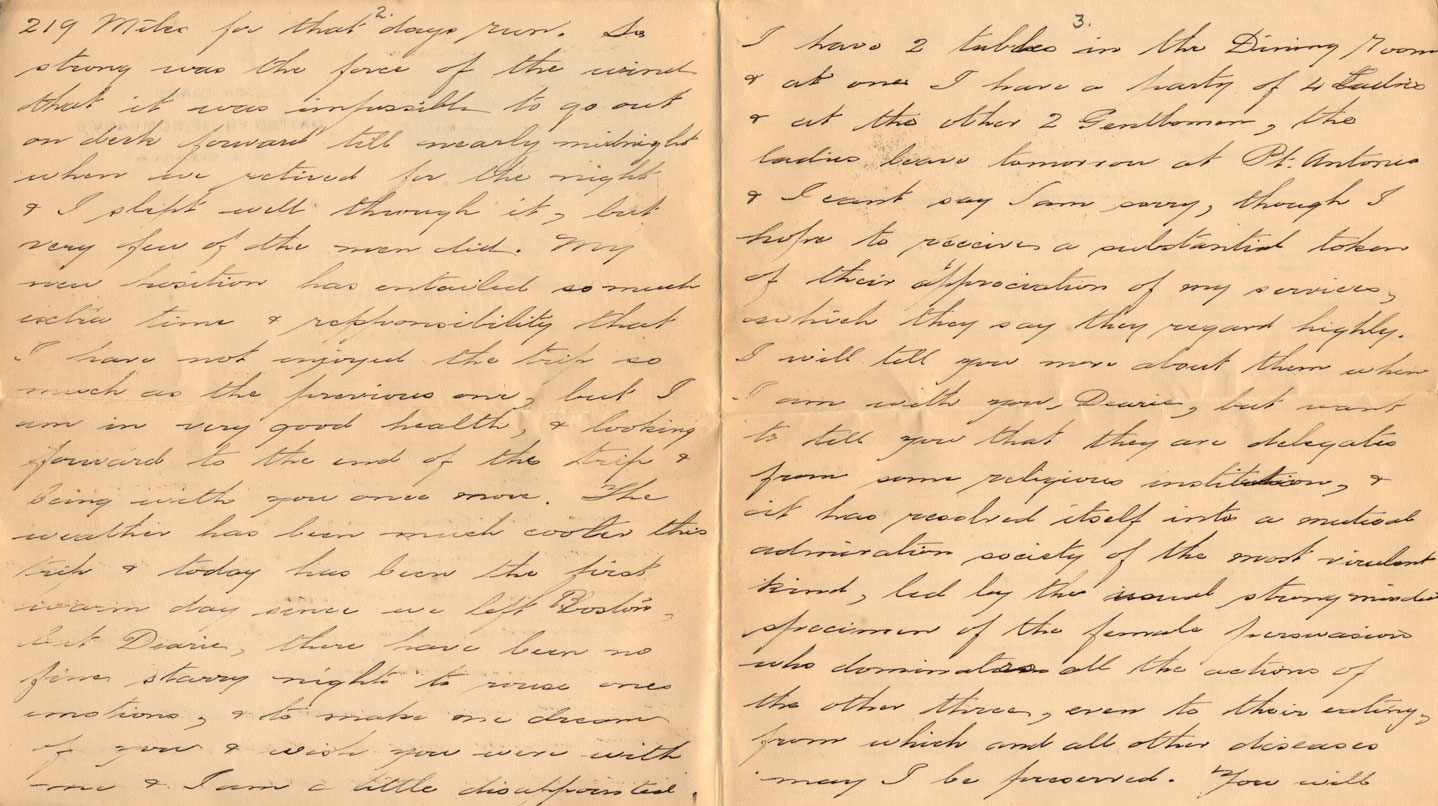 2.
219 Miles for that days run. So
strong was the force of the wind
that it was impossible to go out
on deck forward till nearly midnight
when we retired for the night
& I slept well through it, but
very few of the men did. My
new position has entailed so much
extra time & repponsibility that
I have not enjoyed the trip so
much as the previous one, but I
am in very good health, & looking
forward to the end of the trip &
being with you once more. The
weather has been much cooler this
trip & today has been the first
warm day since we left Boston,
but Dearie, there have been no
fine starry nights to rouse ones
emotions, & to make one dream
of you & wish you were with
me & I am a little disappointed.
3.
I have 2 tables in the Dining Room
& at one I have a party of 4 Ladies
& at the other 2 Gentlemen, the
ladies leave tomorrow at Pt. Antonio
& I cant say I am sorry, though I
hope to receive a substantial token
of their appreciation of my services,
which they say they regard highly.
I will tell you more about them when
I am with you, Dearie, but want
to tell you that they are delegates
from some religious institution, &
it has resolved itself into a mutual
admiration society of the most virulent
kind, led by the usual strong minded
specimen of the female persuasion
who dominates all the actions of
the other three, even to their eating,
from which and all other diseases
may I be preserved. You will